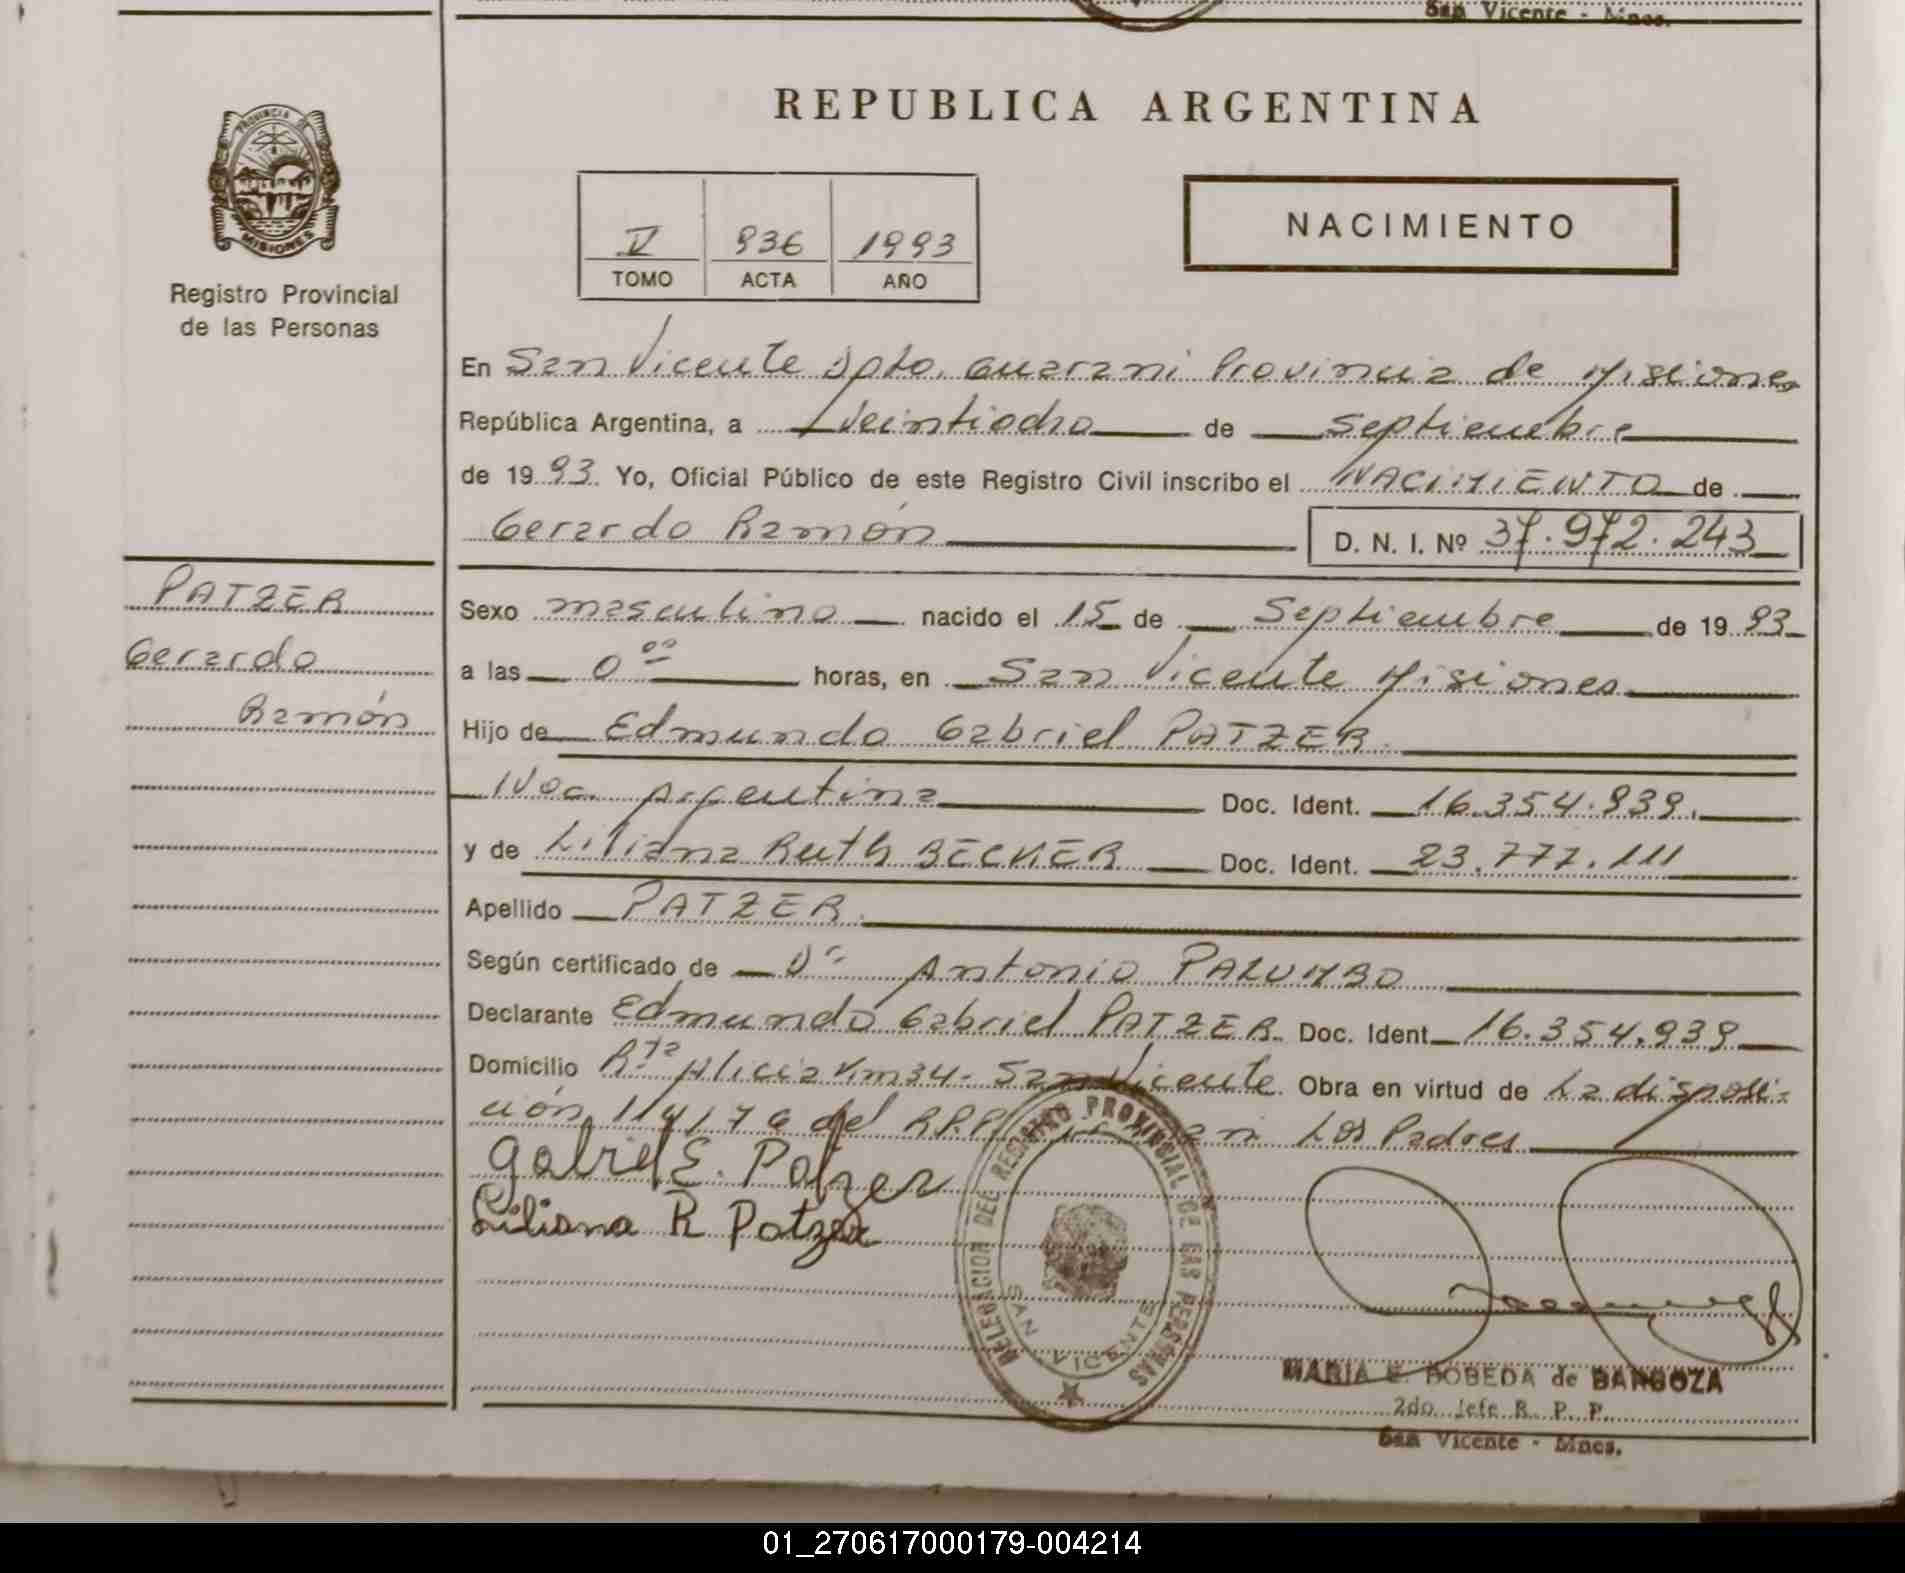 San Vicente - Mnes.
REPUBLICA ARGENTINA
PROVINCIA DE
MISIONES
Registro Provincial
de las Personas
V 936 1993
TOMO ACTA AÑO
NACIMIENTO
En San Vicente Dpto. Guarani Provincia de Misiones
República Argentina, a veintiocho de septiembre
de 1993 Yo, Oficial Público de este Registro Civil inscribo el NACIMIENTO de
Gerardo Ramón D. N. I. Nº 37.972.243
PATZER
Gerardo
Ramón
Sexo masculino nacido el 15 de Septiembre de 1993
a las 0 00 horas, en San Vicente Misiones
Hijo de Edmundo Gabriel PATZER
Nac. Argentina Doc. Ident. 16.354.939.
y de Liliana Ruth BECKER Doc. Ident. 23.777.111
Apellido PATZER.
Según certificado de Dr Antonio PALUMBO
Declarante Edmundo Gabriel PATZER. Doc. Ident 16.354.939
Domicilio Rta Alicia Km 34- San Vicente. Obra en virtud de La disposi-
ción 114/76 del R.P.P. Los Padres
Gabriel E. Patzer
Liliana R Patzer
DELEGACION DEL REGISTRO PROVINCIAL DE LAS PERSONAS
SAN VICENTE
MARIA E. BOBEDA de BARBOZA
2do. Jefe R. P. P.
San Vicente - Mnes.
01_270617000179-004214